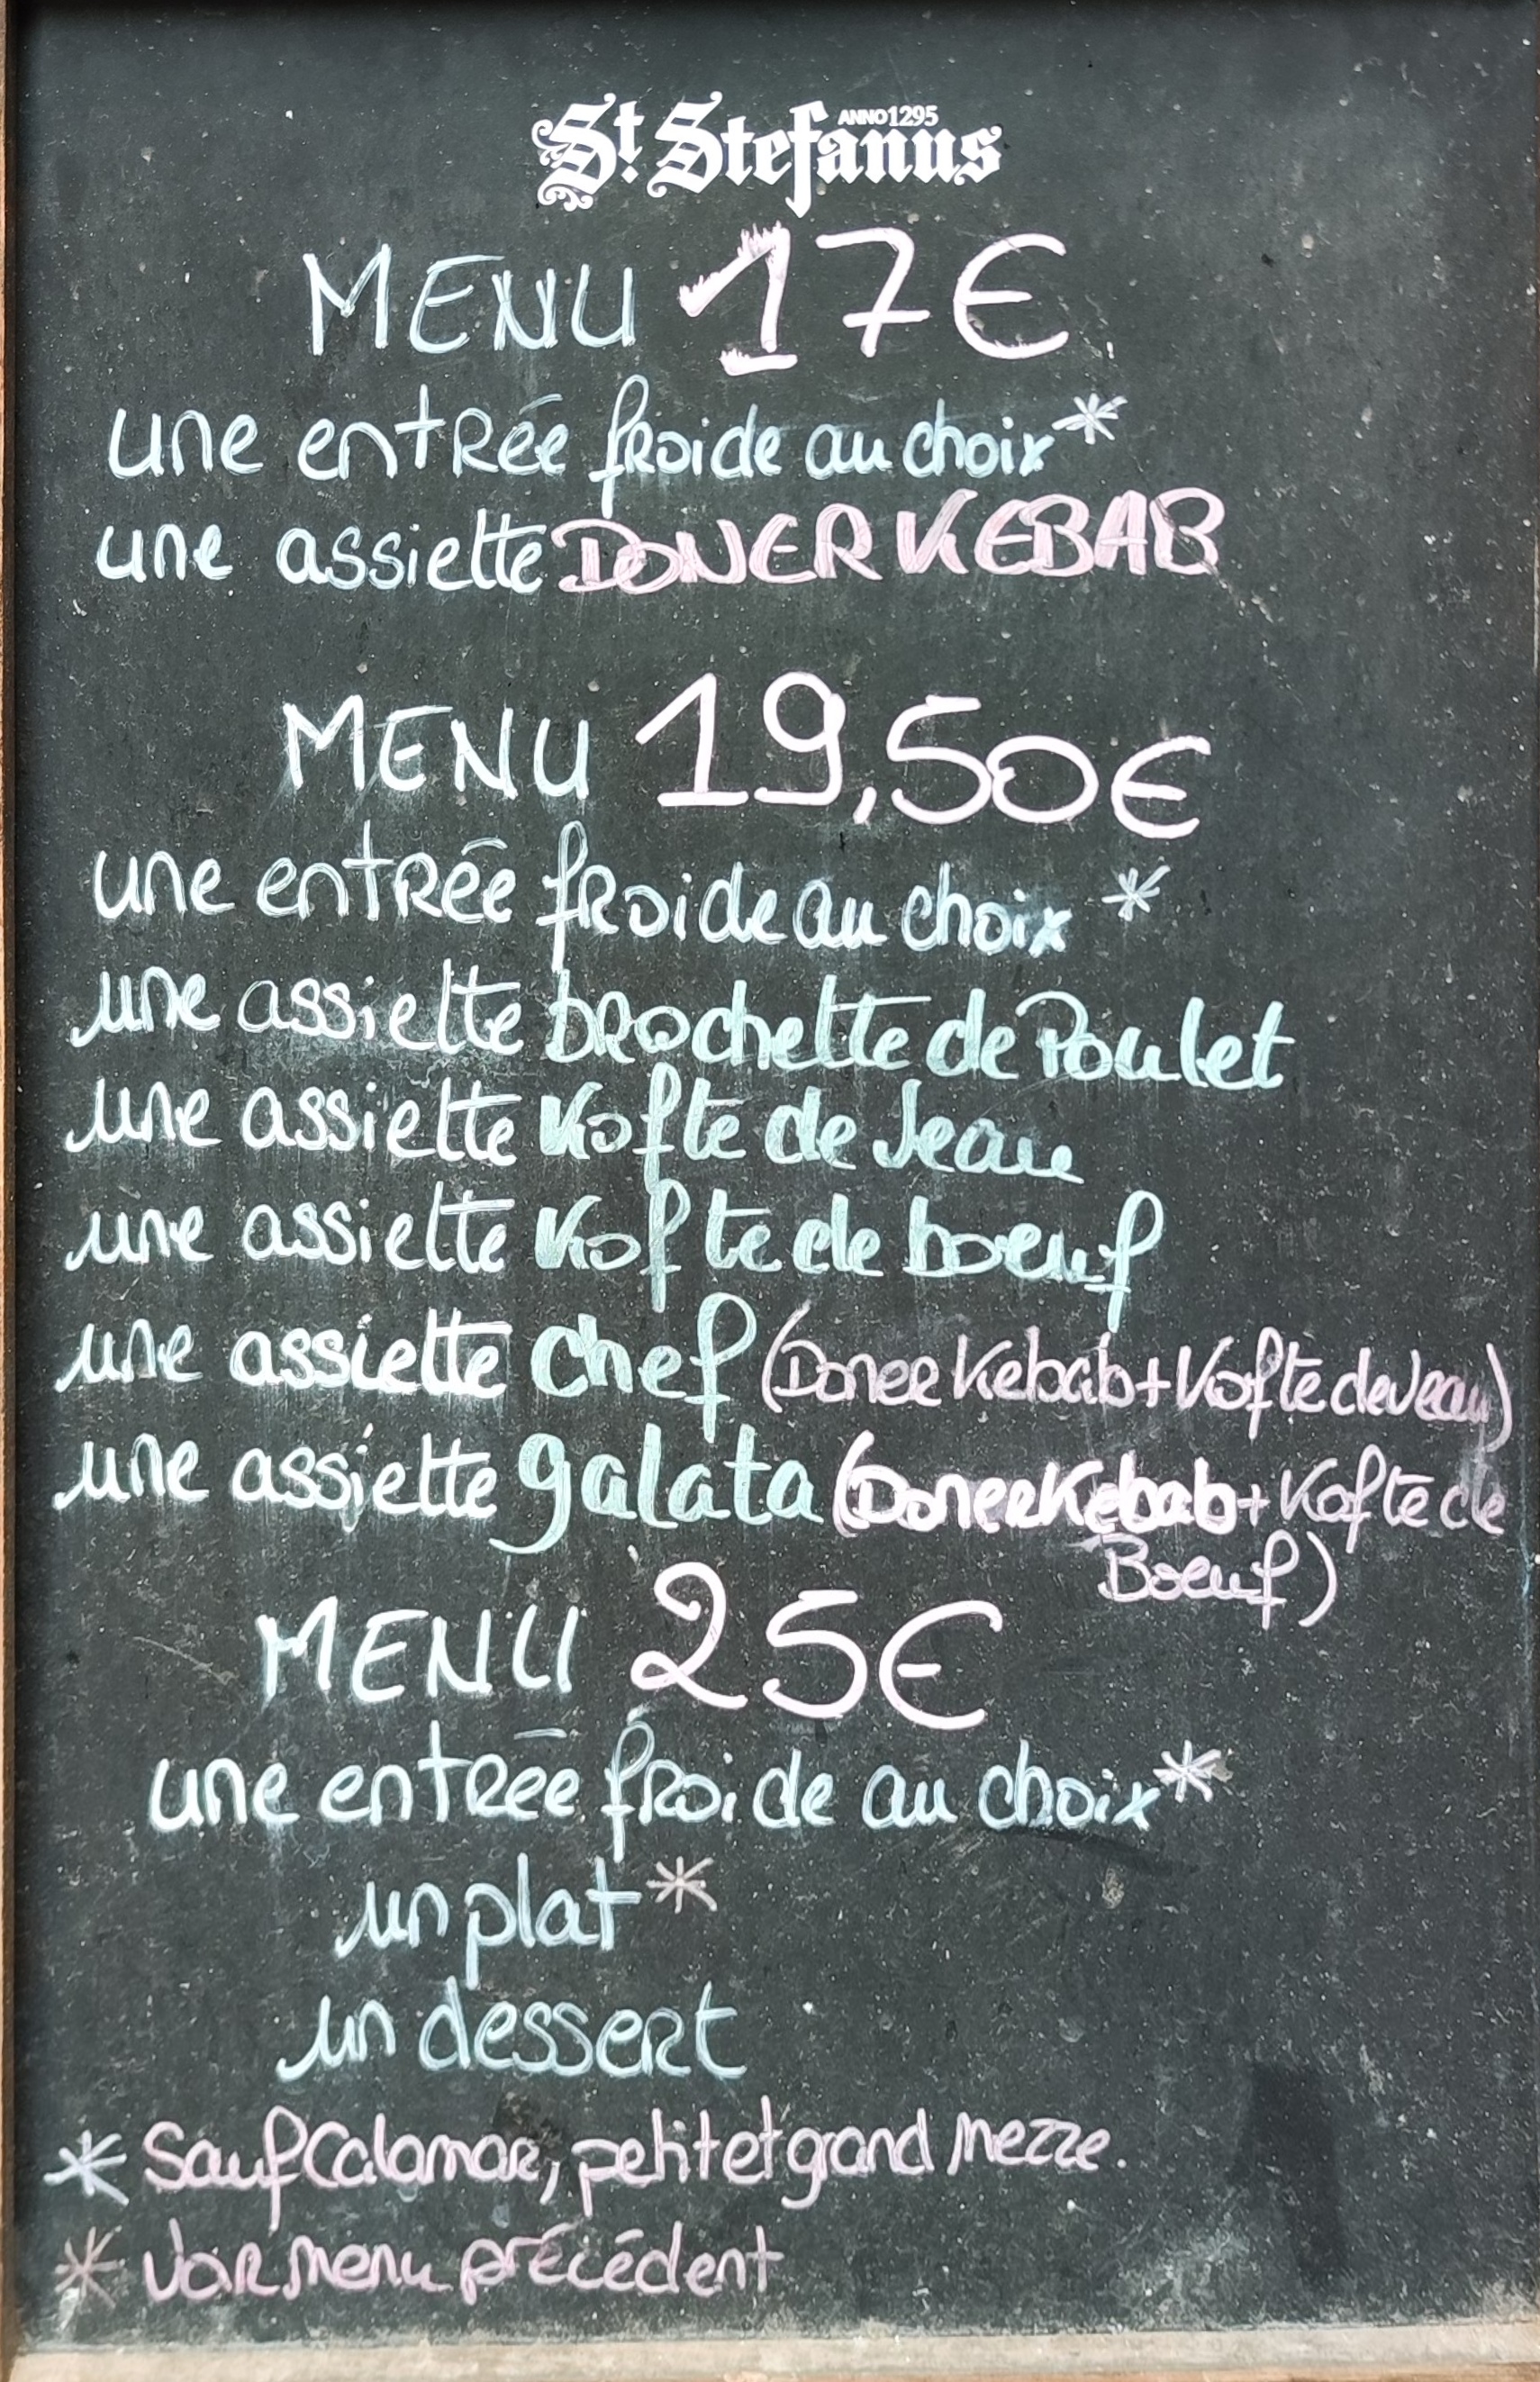 St. Stefanus
ANNO 1295
MENU 17€
une entrée froide au choix*
une assiette DONER KEBAB
MENU 19,50€
une entrée froide au choix *
une assiette brochette de Poulet
une assiette Kofte de Veau
une assiette Kofte de boeuf
une assiette chef (Doner Kebab+Kofte de Veau)
une assiette galata (Doner Kebab+Kofte de
Boeuf)
MENU 25€
une entrée froide au choix*
un plat*
un dessert
* Sauf Calamar, petit et grand Mezze.
* Voir Menu précédent